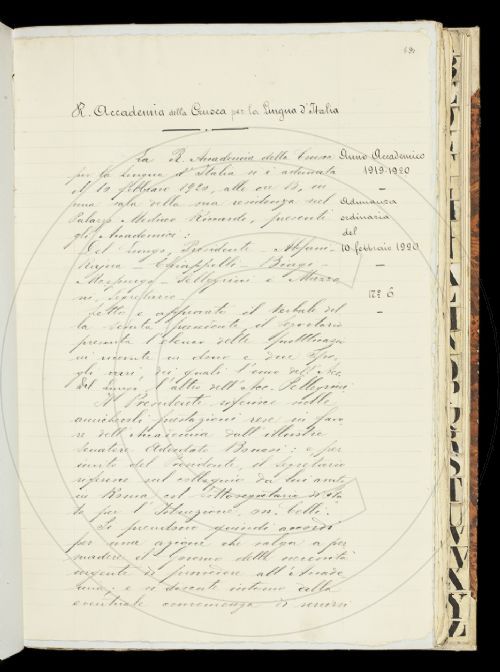 R. Accademia della Crusca per la Lingua d'Italia
La R. Accademia della Crusca
per la Lingua d'Italia si è adunata
il 10 febbraio 1920, alle ore 15, in
una sala della sua residenza nel
Palazzo Mediceo Riccardi, presenti
gli Accademici:
Del Lungo, Presidente –
Rajna – Chiappelli – Biagi –
Morpurgo – Pellegrini e Mazzo
ni, Segretario.
Letto e approvato il verbale del
la tenuta precedente, il Segretario
presenta l'elenco delle pubblicazio
ni venute in dono e due
gli dei quali l'uno dell'Acc.
Del Lungo, l'altro dell'Acc. Pellegrini
Il Presidente riferisce sulle
prestazioni rese in favo
re dell'Accademia dall'illustre
Senatore Adeodato Bonasi: e per
invito del Presidente, il Segretario
riferisce sul colloquio da lui avuto
in Roma col Sottosegretario di sta
to per l'Istruzione, on. Celli.
Si prendono quindi accordi
per una azione che valga a per
suadere il governo della necessità
urgente di provvedere all'Accade
mia; e si discute intorno alla
eventuale convenienza di
Anno Accademico
1919-1920
Adunanza
ordinaria
del
10 febbraio 1920
N.º 6